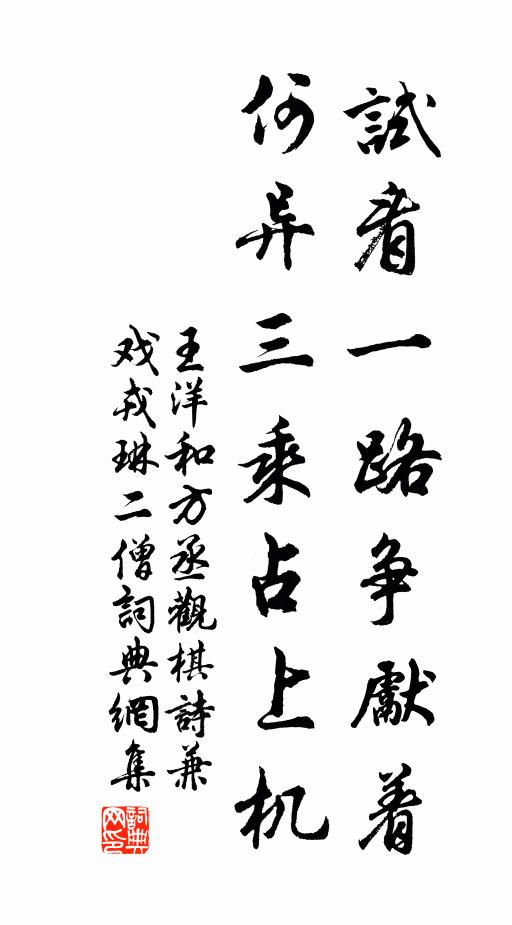 試看一路争獻着
何异三乘占上机
王洋和方丞觀棋詩兼
戏戎琳二僧詞典網集
詞典网印